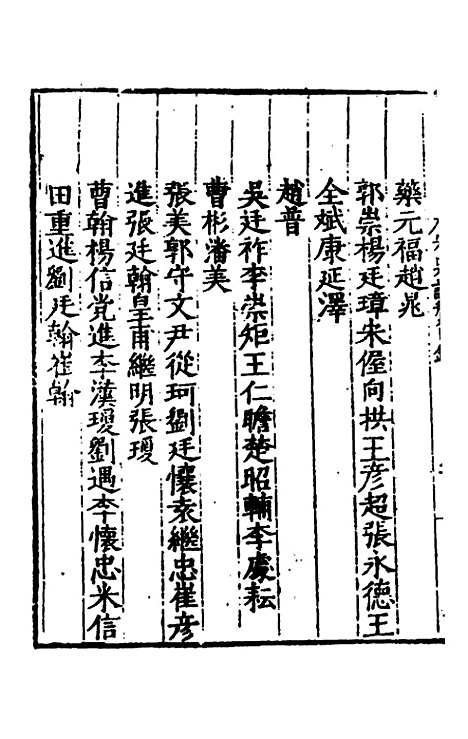 藥元福趙晁
郭崇楊廷璋朱偓向拱王彥超張永德王
全斌康延澤
趙普
吳廷祚李崇矩王仁贍楚昭輔李處耘
曹彬潘美
張美郭守文尹從珂劉廷懷袁繼忠崔彥
進張廷翰皇甫繼明張瓊
曹翰楊信党進李漢瓊劉遇李懷忠米信
田重進劉廷翰崔翰